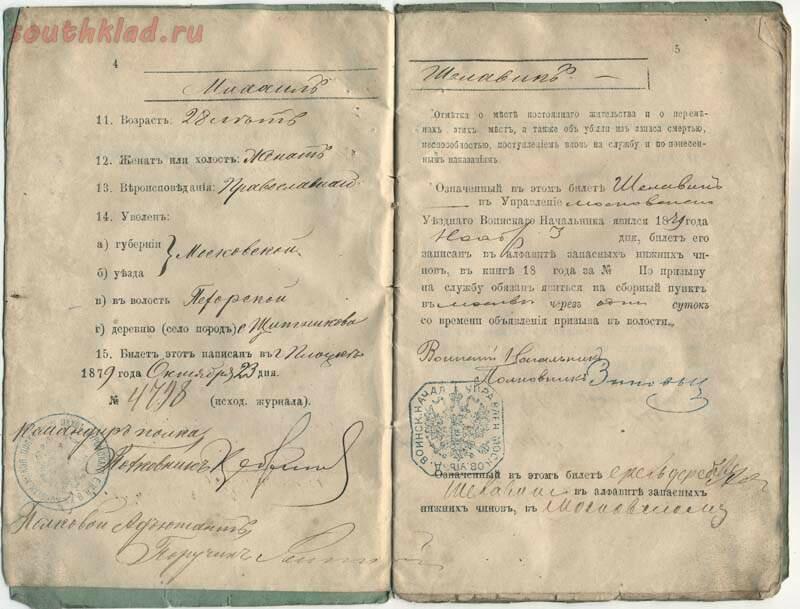 southklad.ru
4
Михаилъ
11. Возрастъ: 28 лѣтъ
12. Женатъ или холостъ: Женатъ
13. Вѣроисповѣданія: Православнаго
14. Уволенъ:
а) губерніи
Московской
б) уѣзда
в) въ волость
г) деревню (село городъ) с
15. Билетъ этотъ написанъ въ г
1879 года Октября 23 дня.
№ 4798 (исход. журнала).
Командиръ полка
Полковникъ
Полковой Адъютантъ
Поручикъ
5
Шелавинъ
Отмѣтка о мѣстѣ постояннаго жительства и о перемѣ-
нахъ этихъ мѣстъ, а также объ убыли изъ запаса смертью,
неспособностью, поступленіемъ вновь на службу и по понесен-
нымъ наказаніямъ.
Означенный въ этомъ билетѣ Шелавинъ
въ Управленіе Московскаго
Уѣзднаго Воинскаго Начальника явился 1879 года
Нояб 3 дня, билетъ его
записанъ въ алфавитѣ запасныхъ нижнихъ чи-
новъ, въ книгѣ 18 года за № По призыву
на службу обязанъ явиться на сборный пунктъ
въ Москвы черезъ одни сутокъ
со времени объявленія призыва въ волости.
Воинскій Начальникъ
Полковникъ
Означенный въ этомъ билетѣ
Шелавинъ въ алфавитѣ запасныхъ
нижнихъ чиновъ, въ Московскому